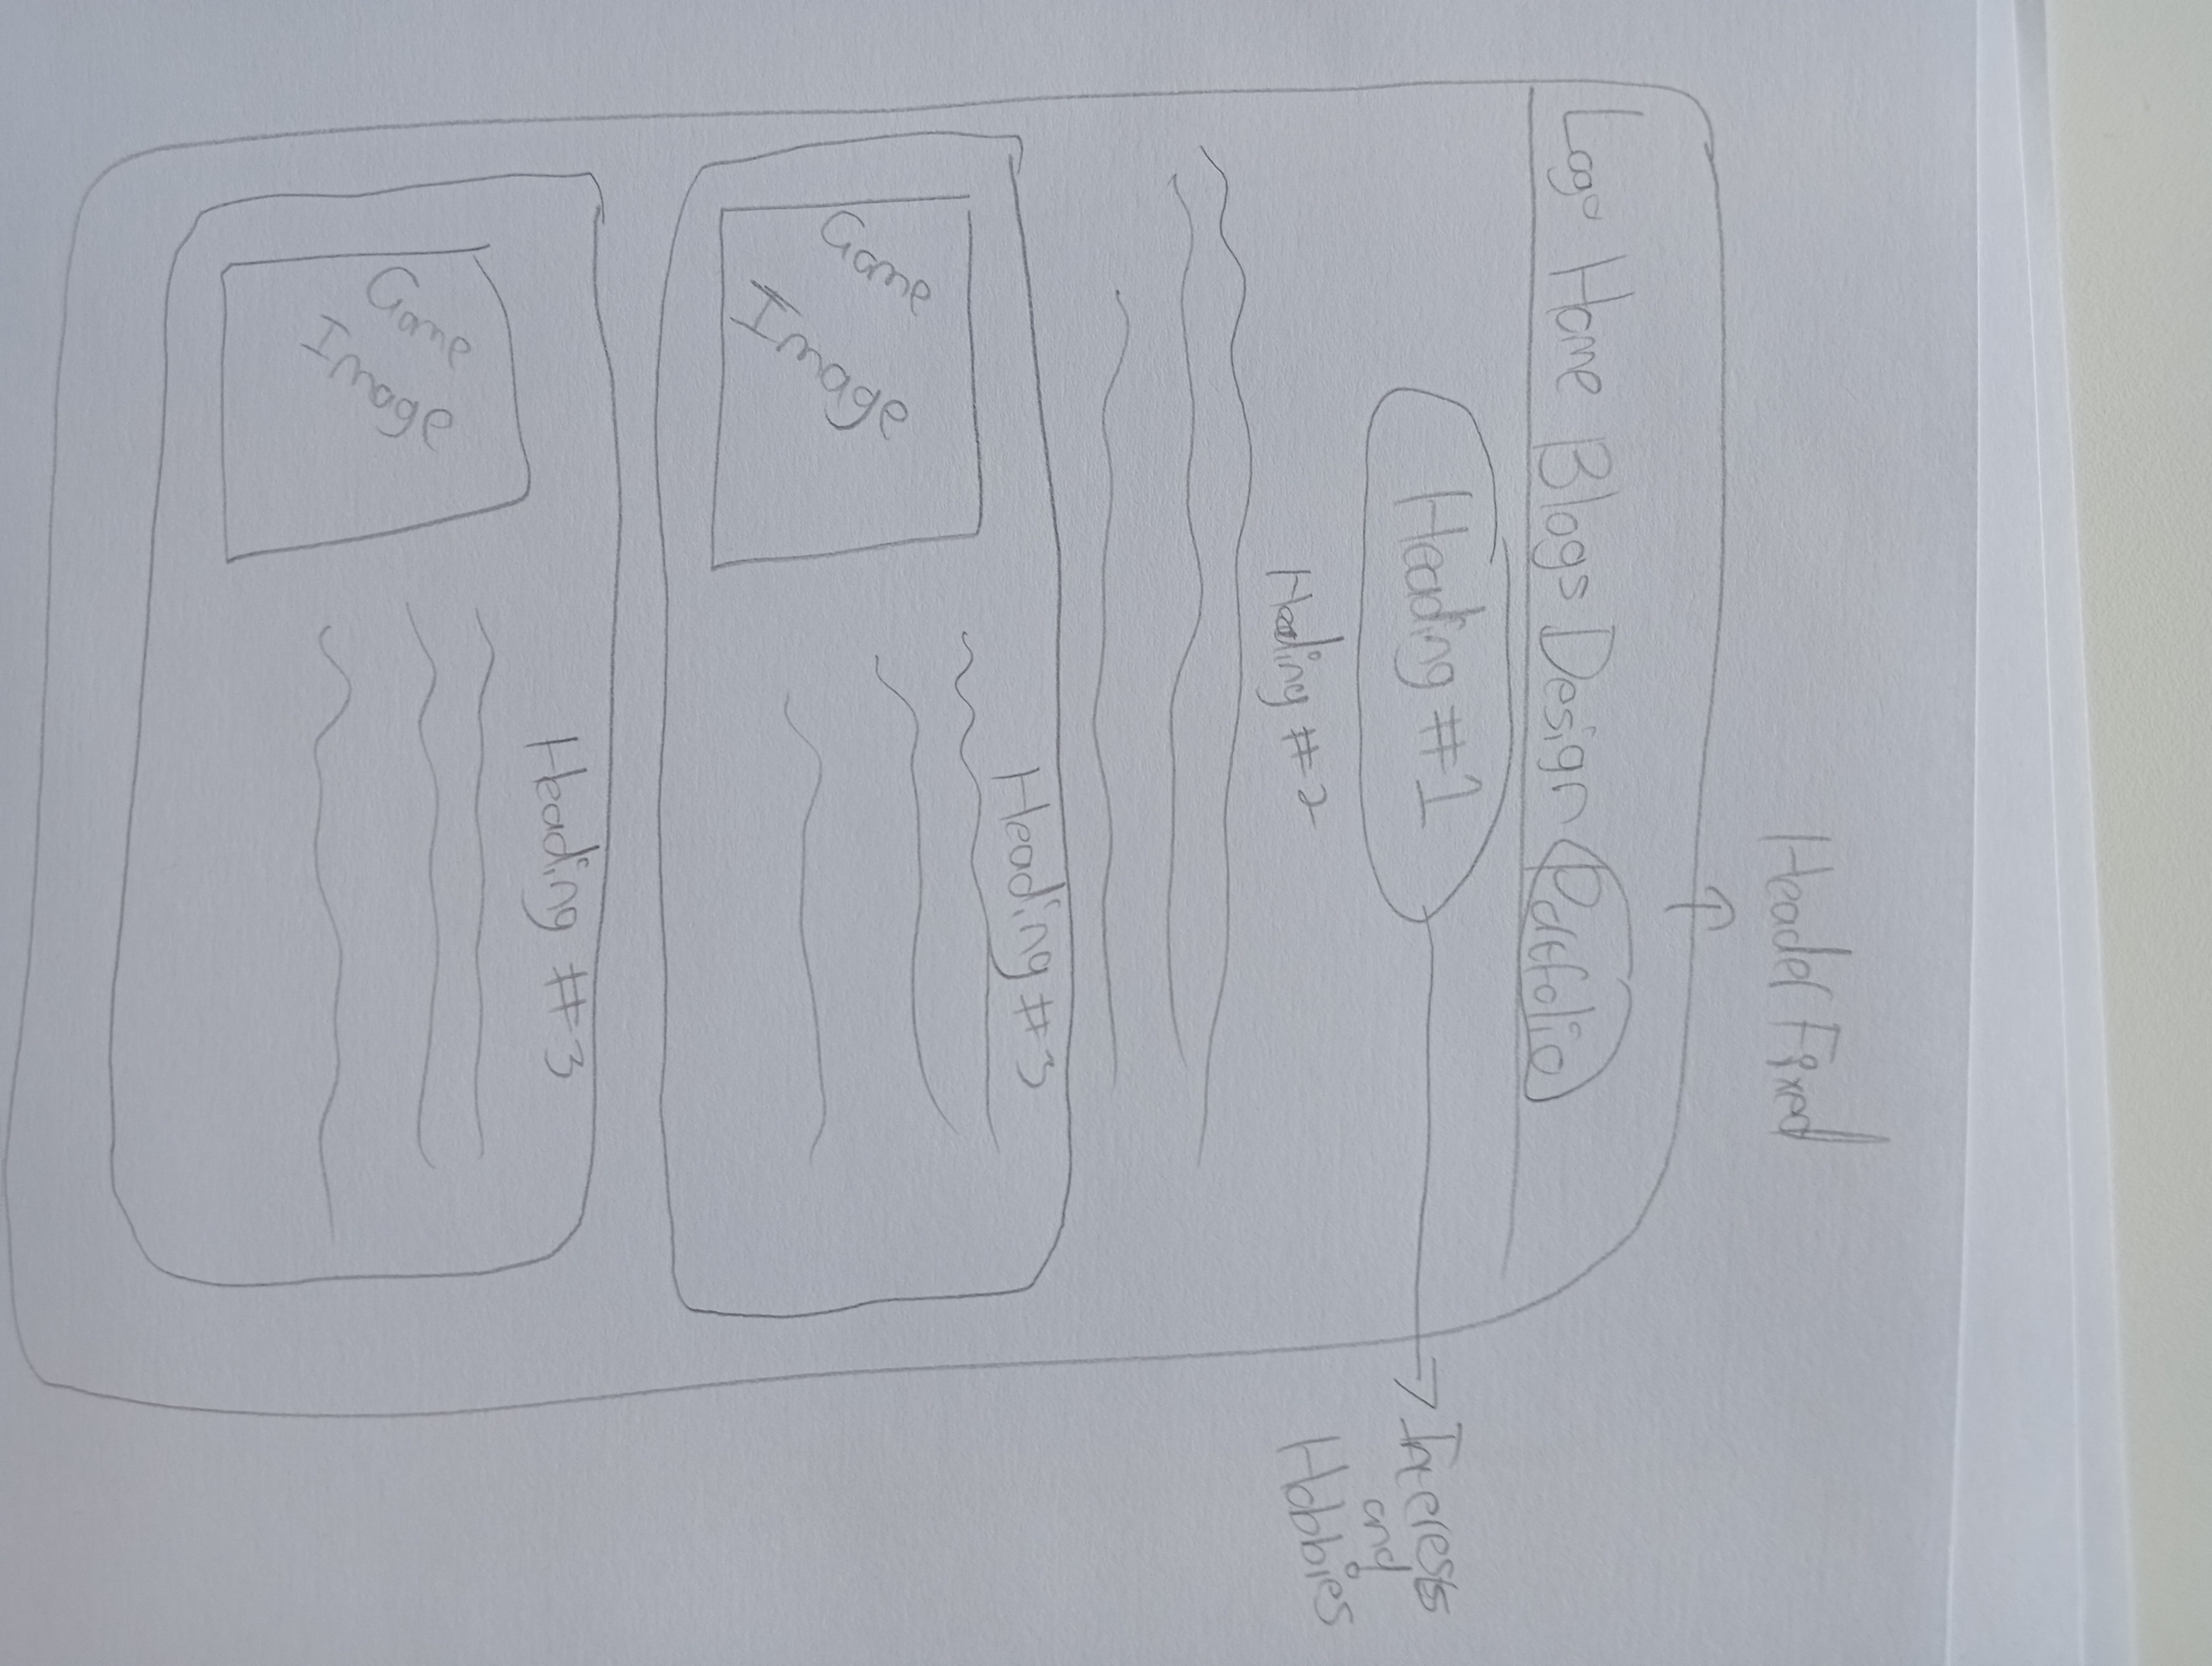 Header Fixed
Logo Home Blogs Design Portfolio
Heading #1
Interests
and
Hobbies
Heading #2
Heading #3
Game
Image
Heading #3
Game
Image